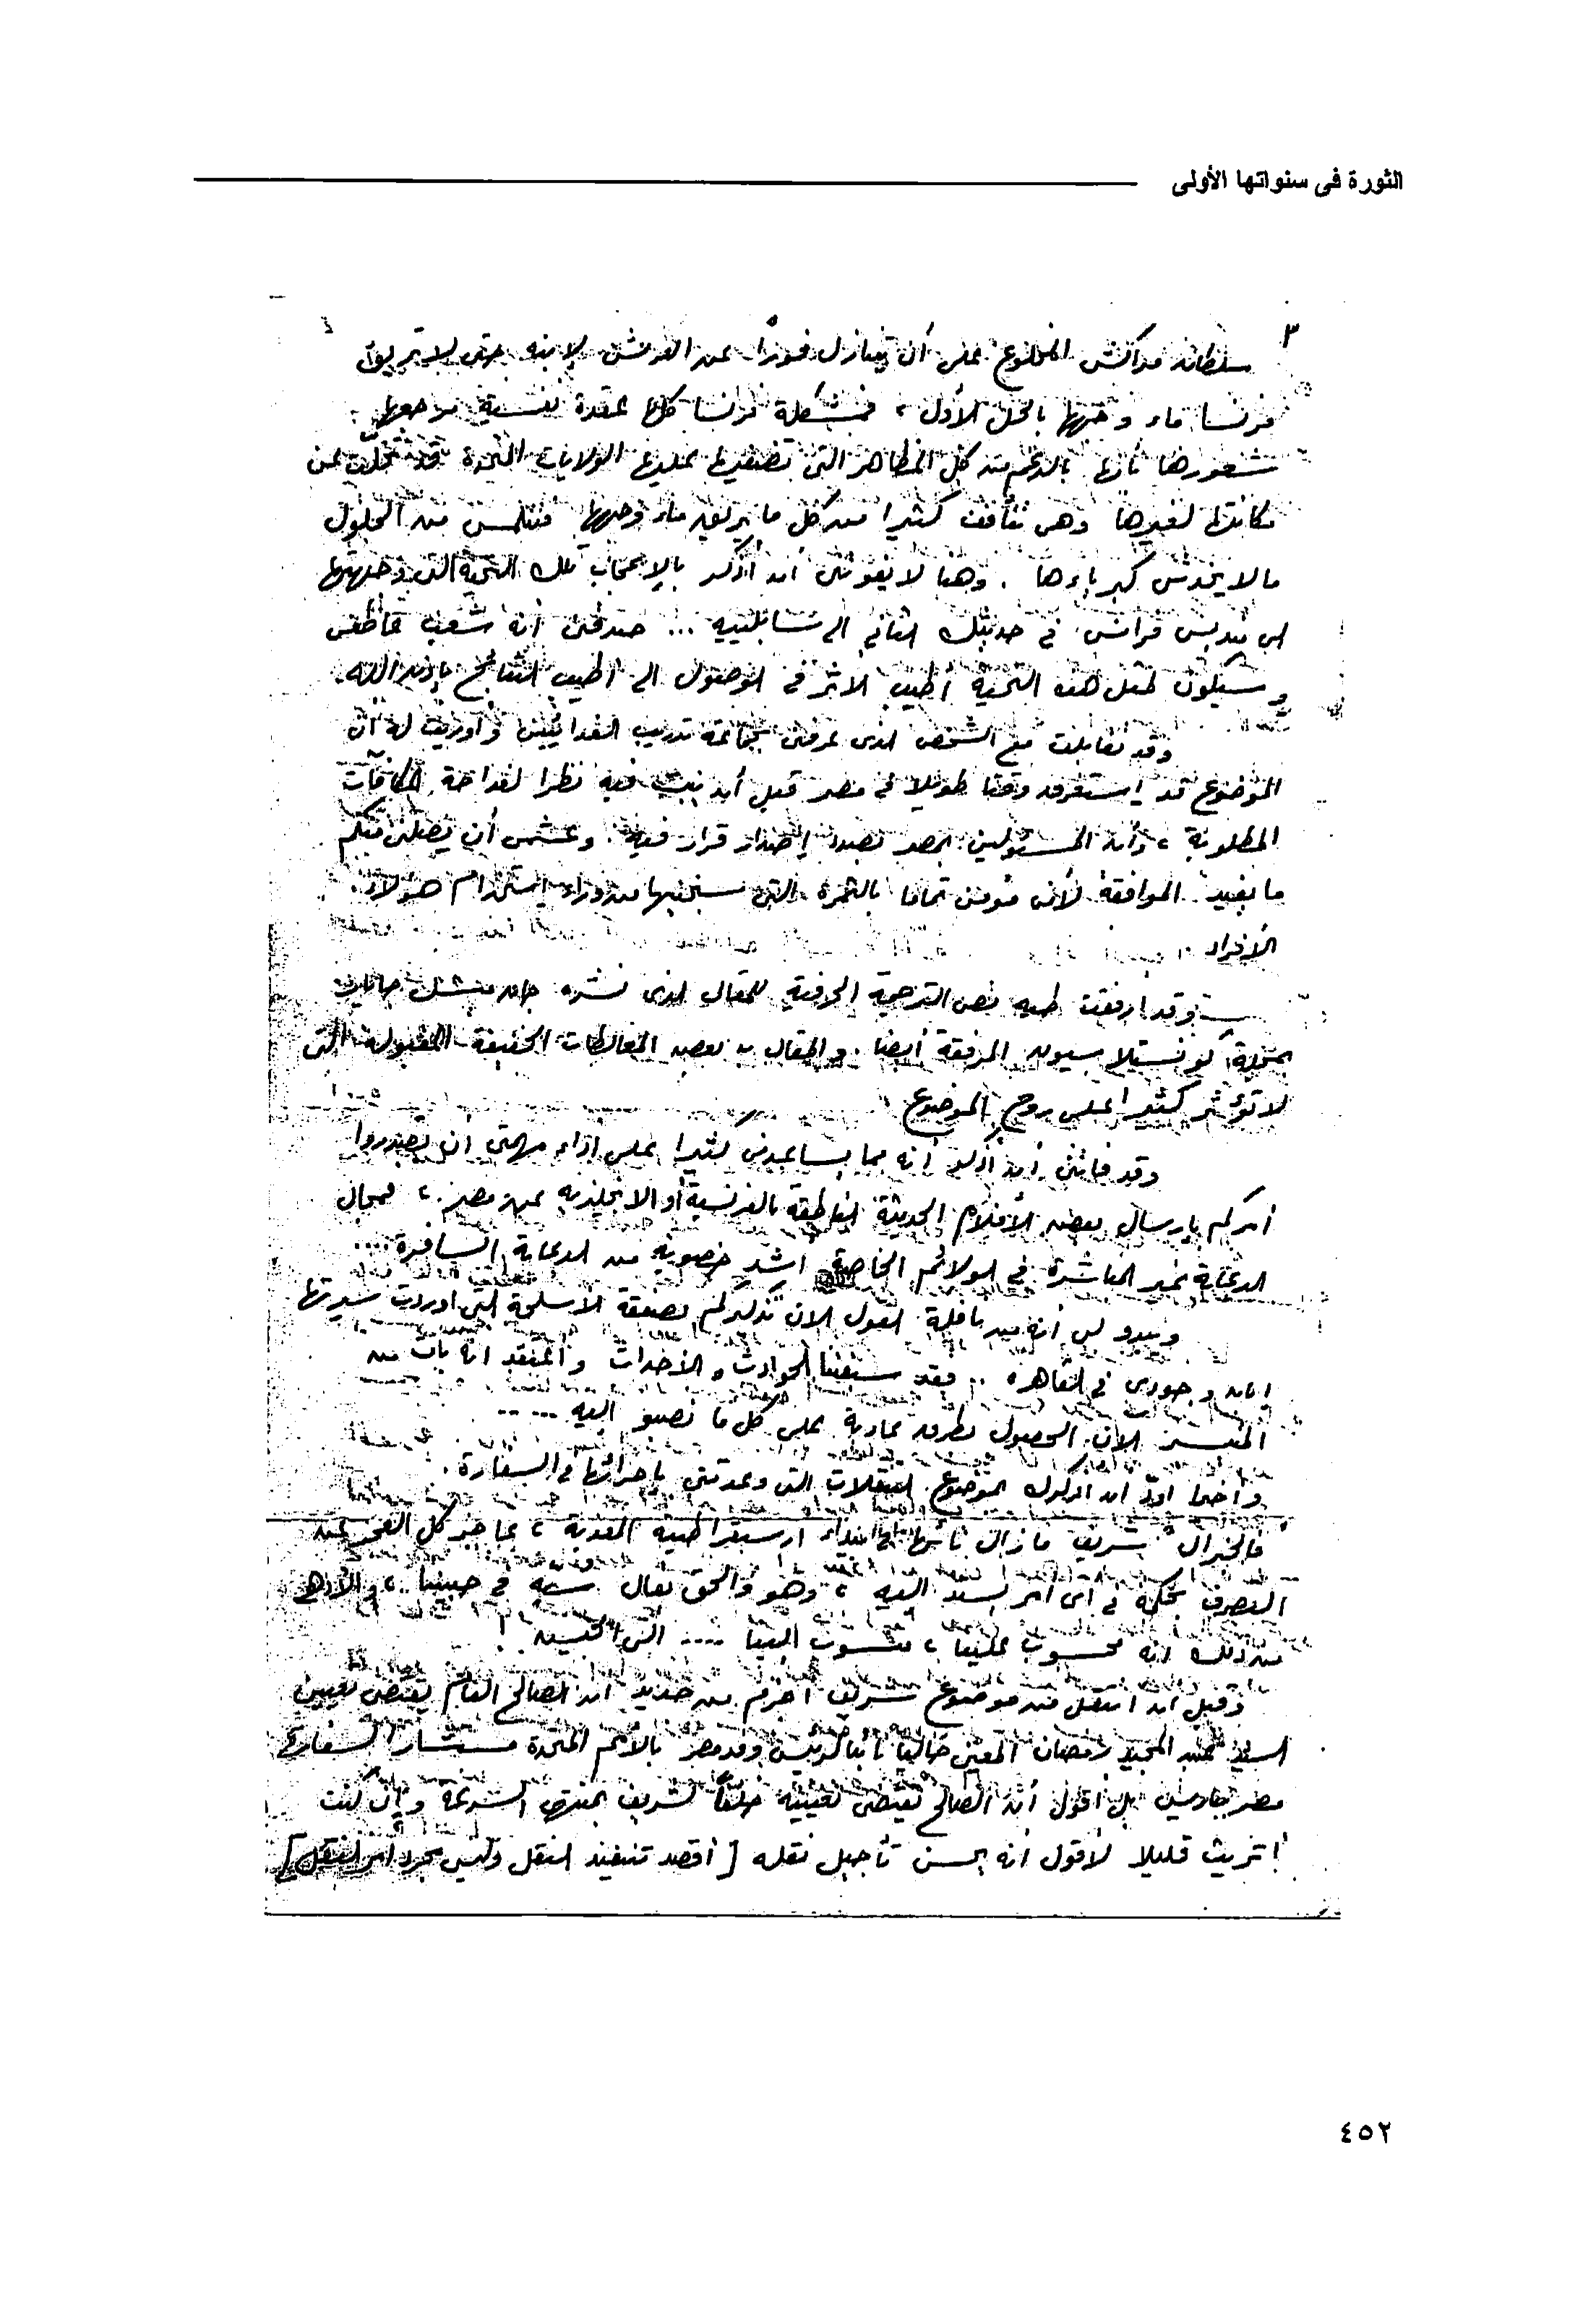 الثورة فى سنواتها الأولى
٣
سلطان مراكش المخلوع على أن يتنازل فورًا عن العرش لإبنه حتى لا تريق
فرنسا ماء وجهها بالحل الأول ، فمشكلة فرنسا كلها عقدة نفسية مرجعها
شعورها بأنها بالرغم من كل المظاهر التى تضفيها عليها الولايات المتحدة قد تخلت عن
مكانتها لغيرها وهى تتأفف كثيرا من كل ما يريق ماء وجهها فنتلمس من الحلول
مالا يخدش كبرياءها . وهنا لا يفوتنى أن أذكر بالإعجاب تلك التحية التى وجهتها
الى منديس فرانس فى حديثك الثانى الى ... صدقنى أنه شعب عاطفى
وسيكون لمثل هذه التحية أطيب الاثر فى الوصول الى أطيب النتائج بإذن الله.
وقد تقابلت مع الشخص الذى عرض جماعة تدريب الفدائيين وأوضحت له أن
الموضوع قد إستغرق وقتا طويلا فى مصر قبل أن يبت فيه نظرا لفداحة المكافآت
المطلوبة ، وأن المسئولين بمصر بصدد إصدار قرار فيه . وعشمى أن يصلنى منكم
ما يفيد الموافقة لأنى مؤمن تماما بالثمرة التى سنجنيها من وراء إستخدام هؤلاء
الأفراد .
وقد ارفقت طيه نص الترجمة الحرفية للمقال الذى نشره جان ميشيل
بمجلة كونستلاسيون المرفقة أيضا . والمقال به بعض المغالطات الخفيفة المقبولة التى
لا تؤثر كثيرا على روح الموضوع
وقد فاتنى أن أذكر أنه مما يساعدنى كثيرا على اداء مهمتى ان تصدروا
أمركم بإرسال بعض الأفلام الحديثة الناطقة بالفرنسية أو الانجليزيه عن مصر . ، فمجال
الدعاية غير المباشرة فى الولائم الخاصة اشد خصوبة من الدعاية السافرة ....
ويبدو لى أنه من نافلة القول الان تذكيركم بصفقة الاسلحة التى اوردت سيرتها
إبان وجودى فى القاهره .. فقد سبقتنا الحوادث والأحداث وأعتقد انه بات من
المتيسر الان الحصول بطرق عادية على كل ما نصبو اليه .....
وأخيرا اود ان اذكرك بموضوع التنقلات التى وعدتنى بإجرائها فى السفارة .
فالجنرال شريف مازال تائها فى ارستقراطيته المعدنية ، عاجز كل العجز عن
التصرف بحكمة فى أى أمر يسند اليه ، وهو والحق يقال سبة فى جبيننا .. ، والأدهى
من ذلك انه محسوب علينا ، منسوب الينا .... الى الجيش !
وقبل ان انتقل من موضوع شريف اجزم من جديد ان الصالح العام يقتضى تعيين
السيد عبد المجيد رمضان المعين حاليا نائبا لرئيس وفد مصر بالأمم المتحدة مستشارا لسفارة
مصر بباريس بل أقول أن الصالح يقتضى تعيينه خلفا لشريف بمنتهى السرعة وإن كنت
أتريث قليلا لأقول أنه يحسن تأجيل نقله [ أقصد تنفيذ النقل وليس مجرد أمر النقل ]
٤٥٢